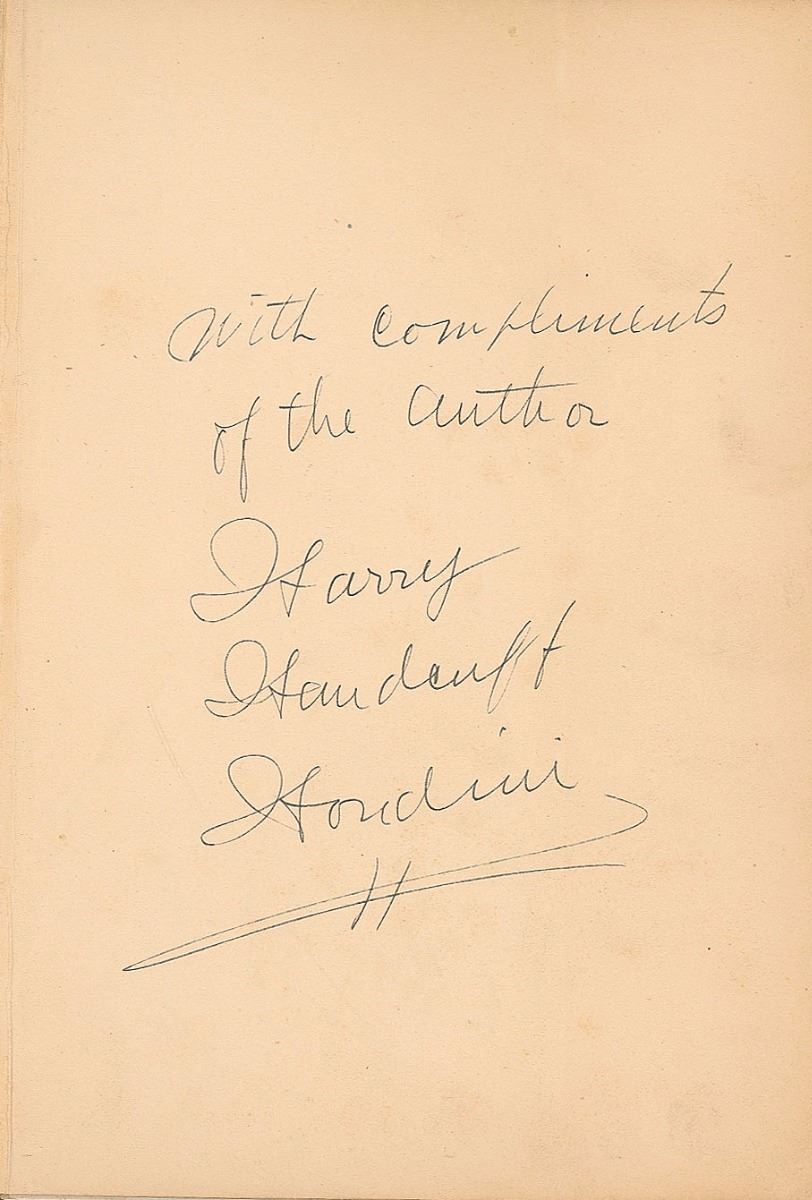 With compliments
of the author
Harry
Handcuff
Houdini